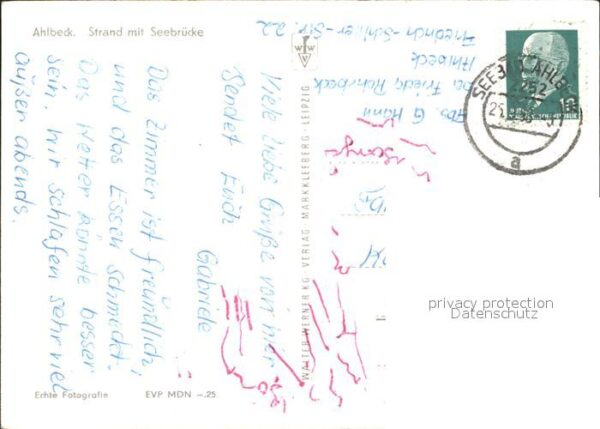 Ahlbeck. Strand mit Seebrücke
Viele liebe Grüße von hier
Sendet Euch
Gabriele
Das Zimmer ist freundlich,
und das Essen schmeckt.
Das Wetter könnte besser
sein, wir schlafen sehr viel
außer abends.
Abs. G. Hahn
bei Frieda Rohrbeck
Ahlbeck
Friedrich-Schiller-Str. 22
WALTER WERNER KG VERLAG MARKKLEEBERG-LEIPZIG
SEEBAD AHLBECK
a
10
privacy protection
Datenschutz
Echte Fotografie
EVP MDN -.25